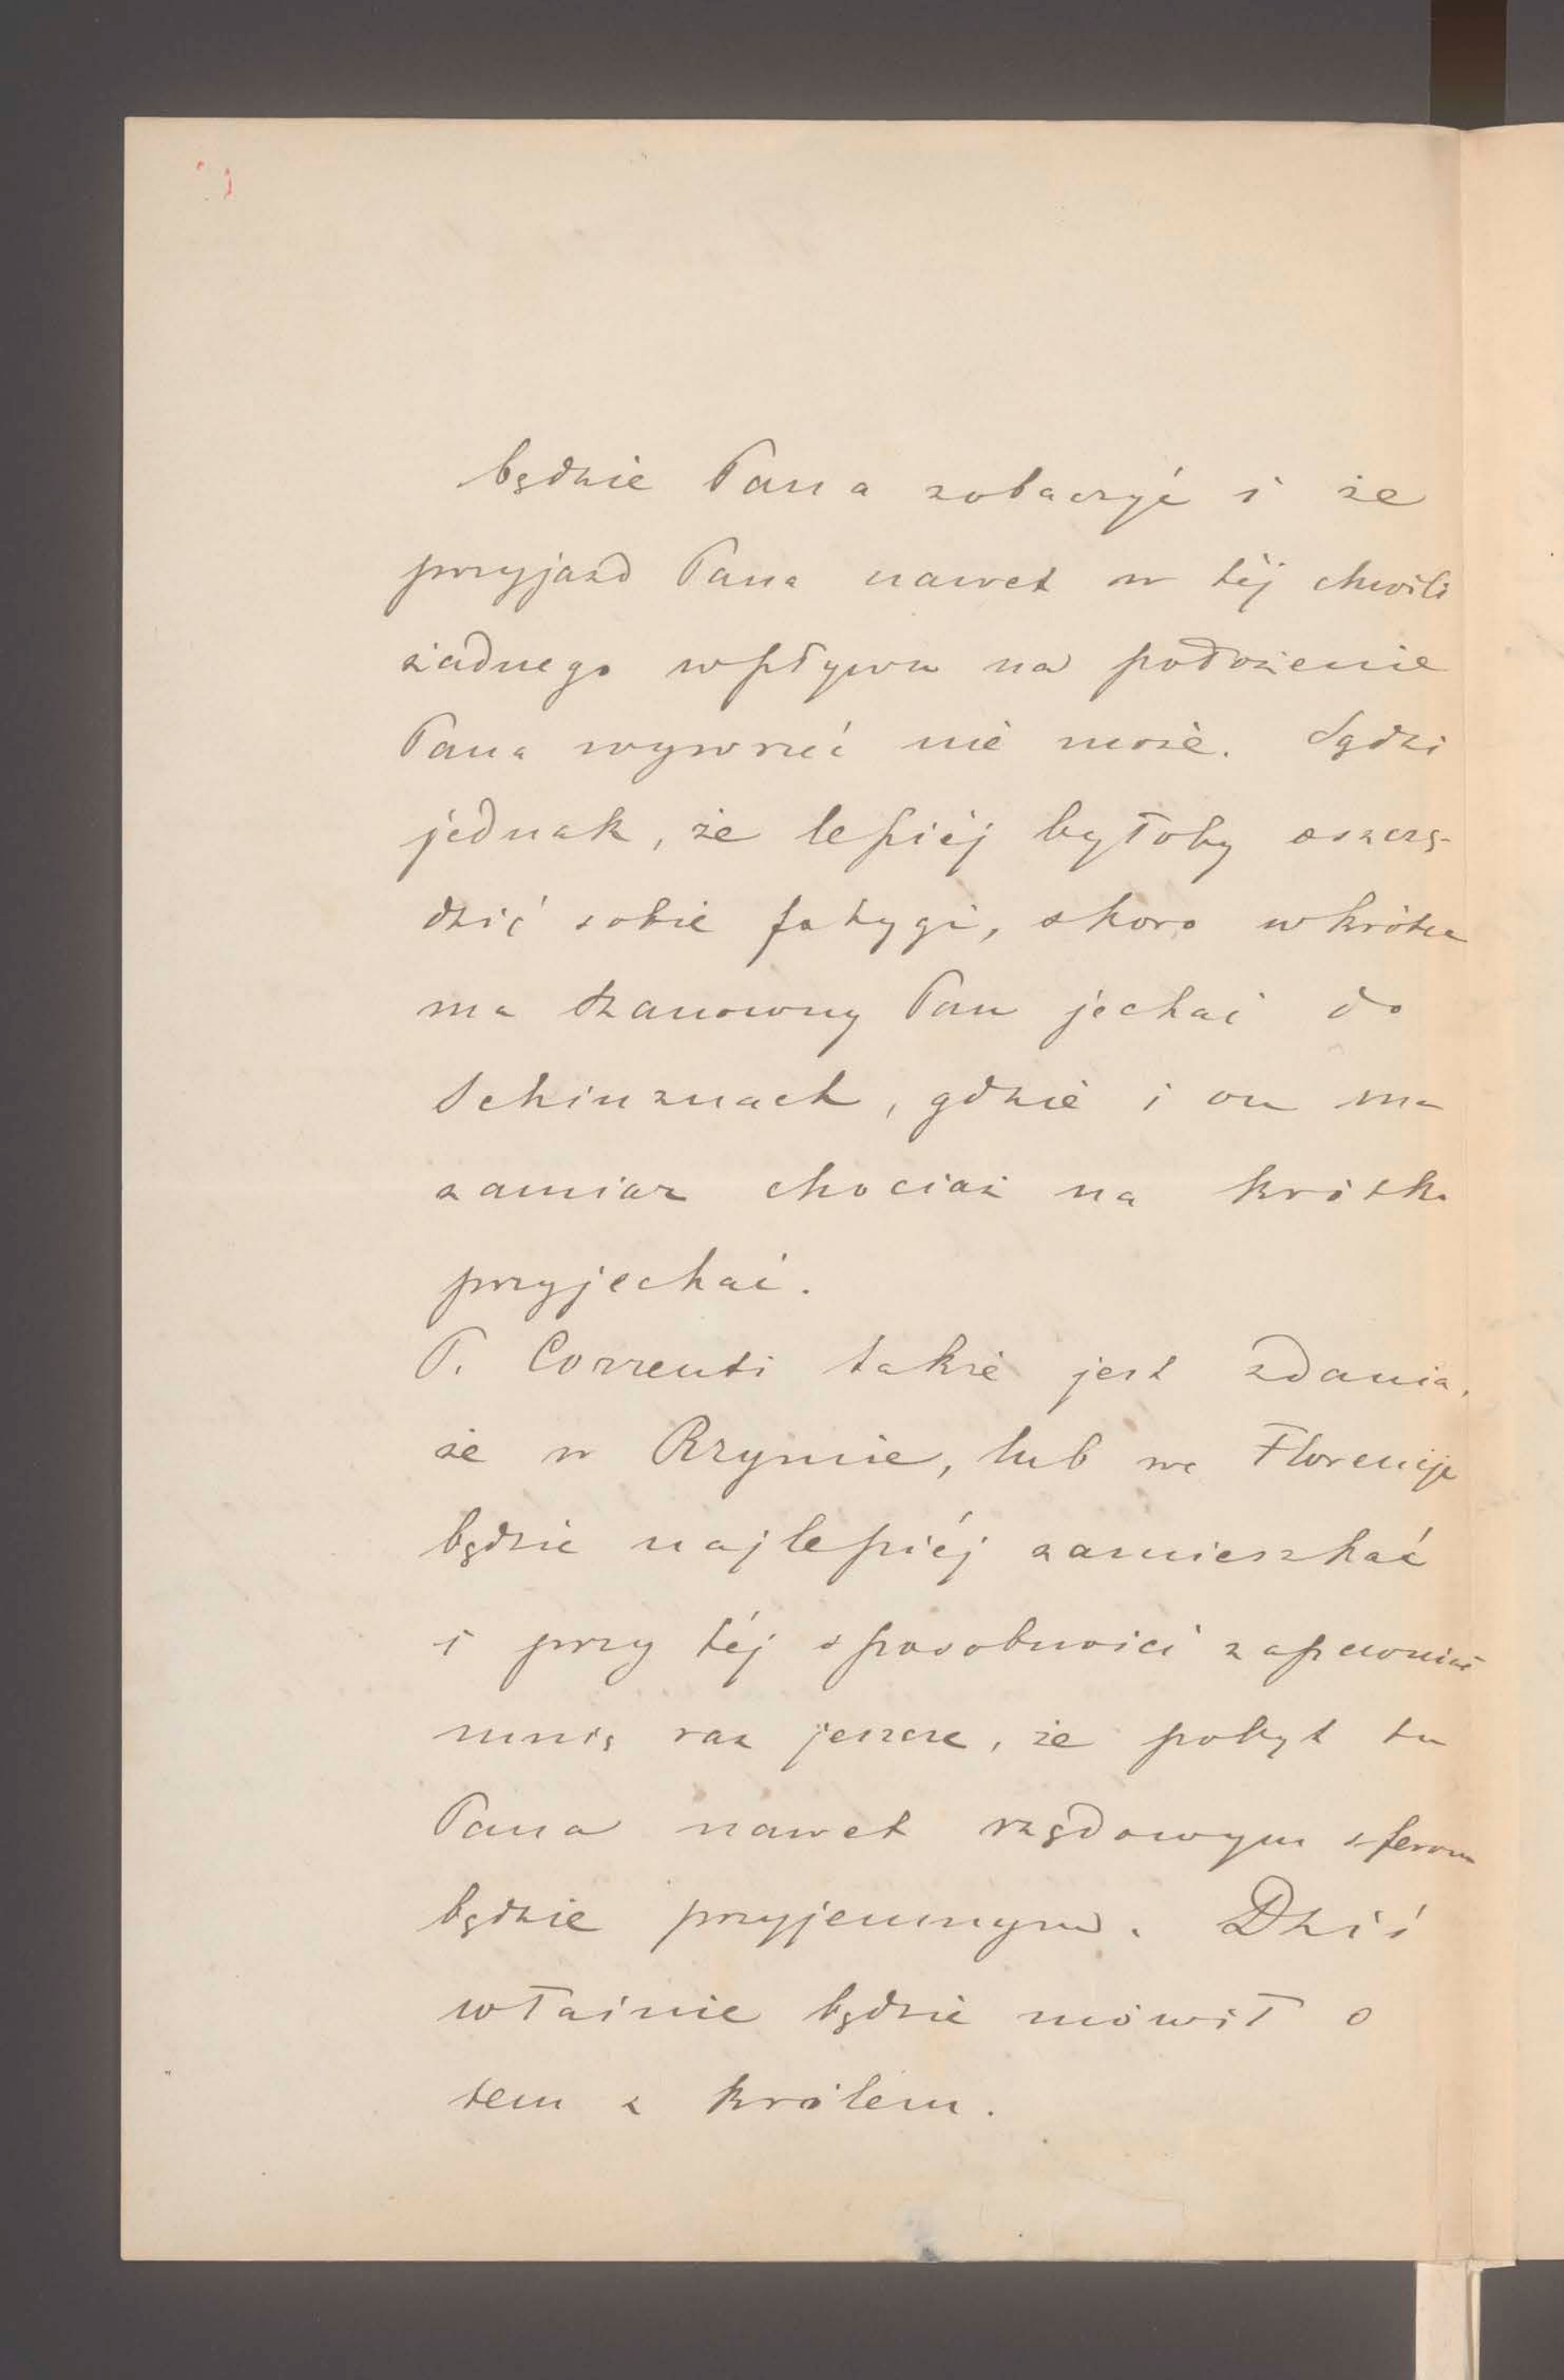 będzie Pana zobaczyć i że
przyjazd Pana nawet w téj chwili
żadnego wpływu na położenie
Pana wywrzeć nie może. Sądzi
jednak, że lepiéj byłoby oszczę-
dzić sobie fatygi, skoro wkrótce
ma Szanowny Pan jechać do
Schinznach, gdzie i on ma
zamiar chociaż na krótko
przyjechać.
P. Correnti także jest zdania,
że w Rzymie, lub we Florencji
będzie najlepiéj zamieszkać
i przy téj sposobności zapewniał
mnię raz jeszcze, że pobyt tu
Pana nawet rządowym sferom
będzie przyjemnym. Dziś
właśnie będzie mówił o
tem z królem.